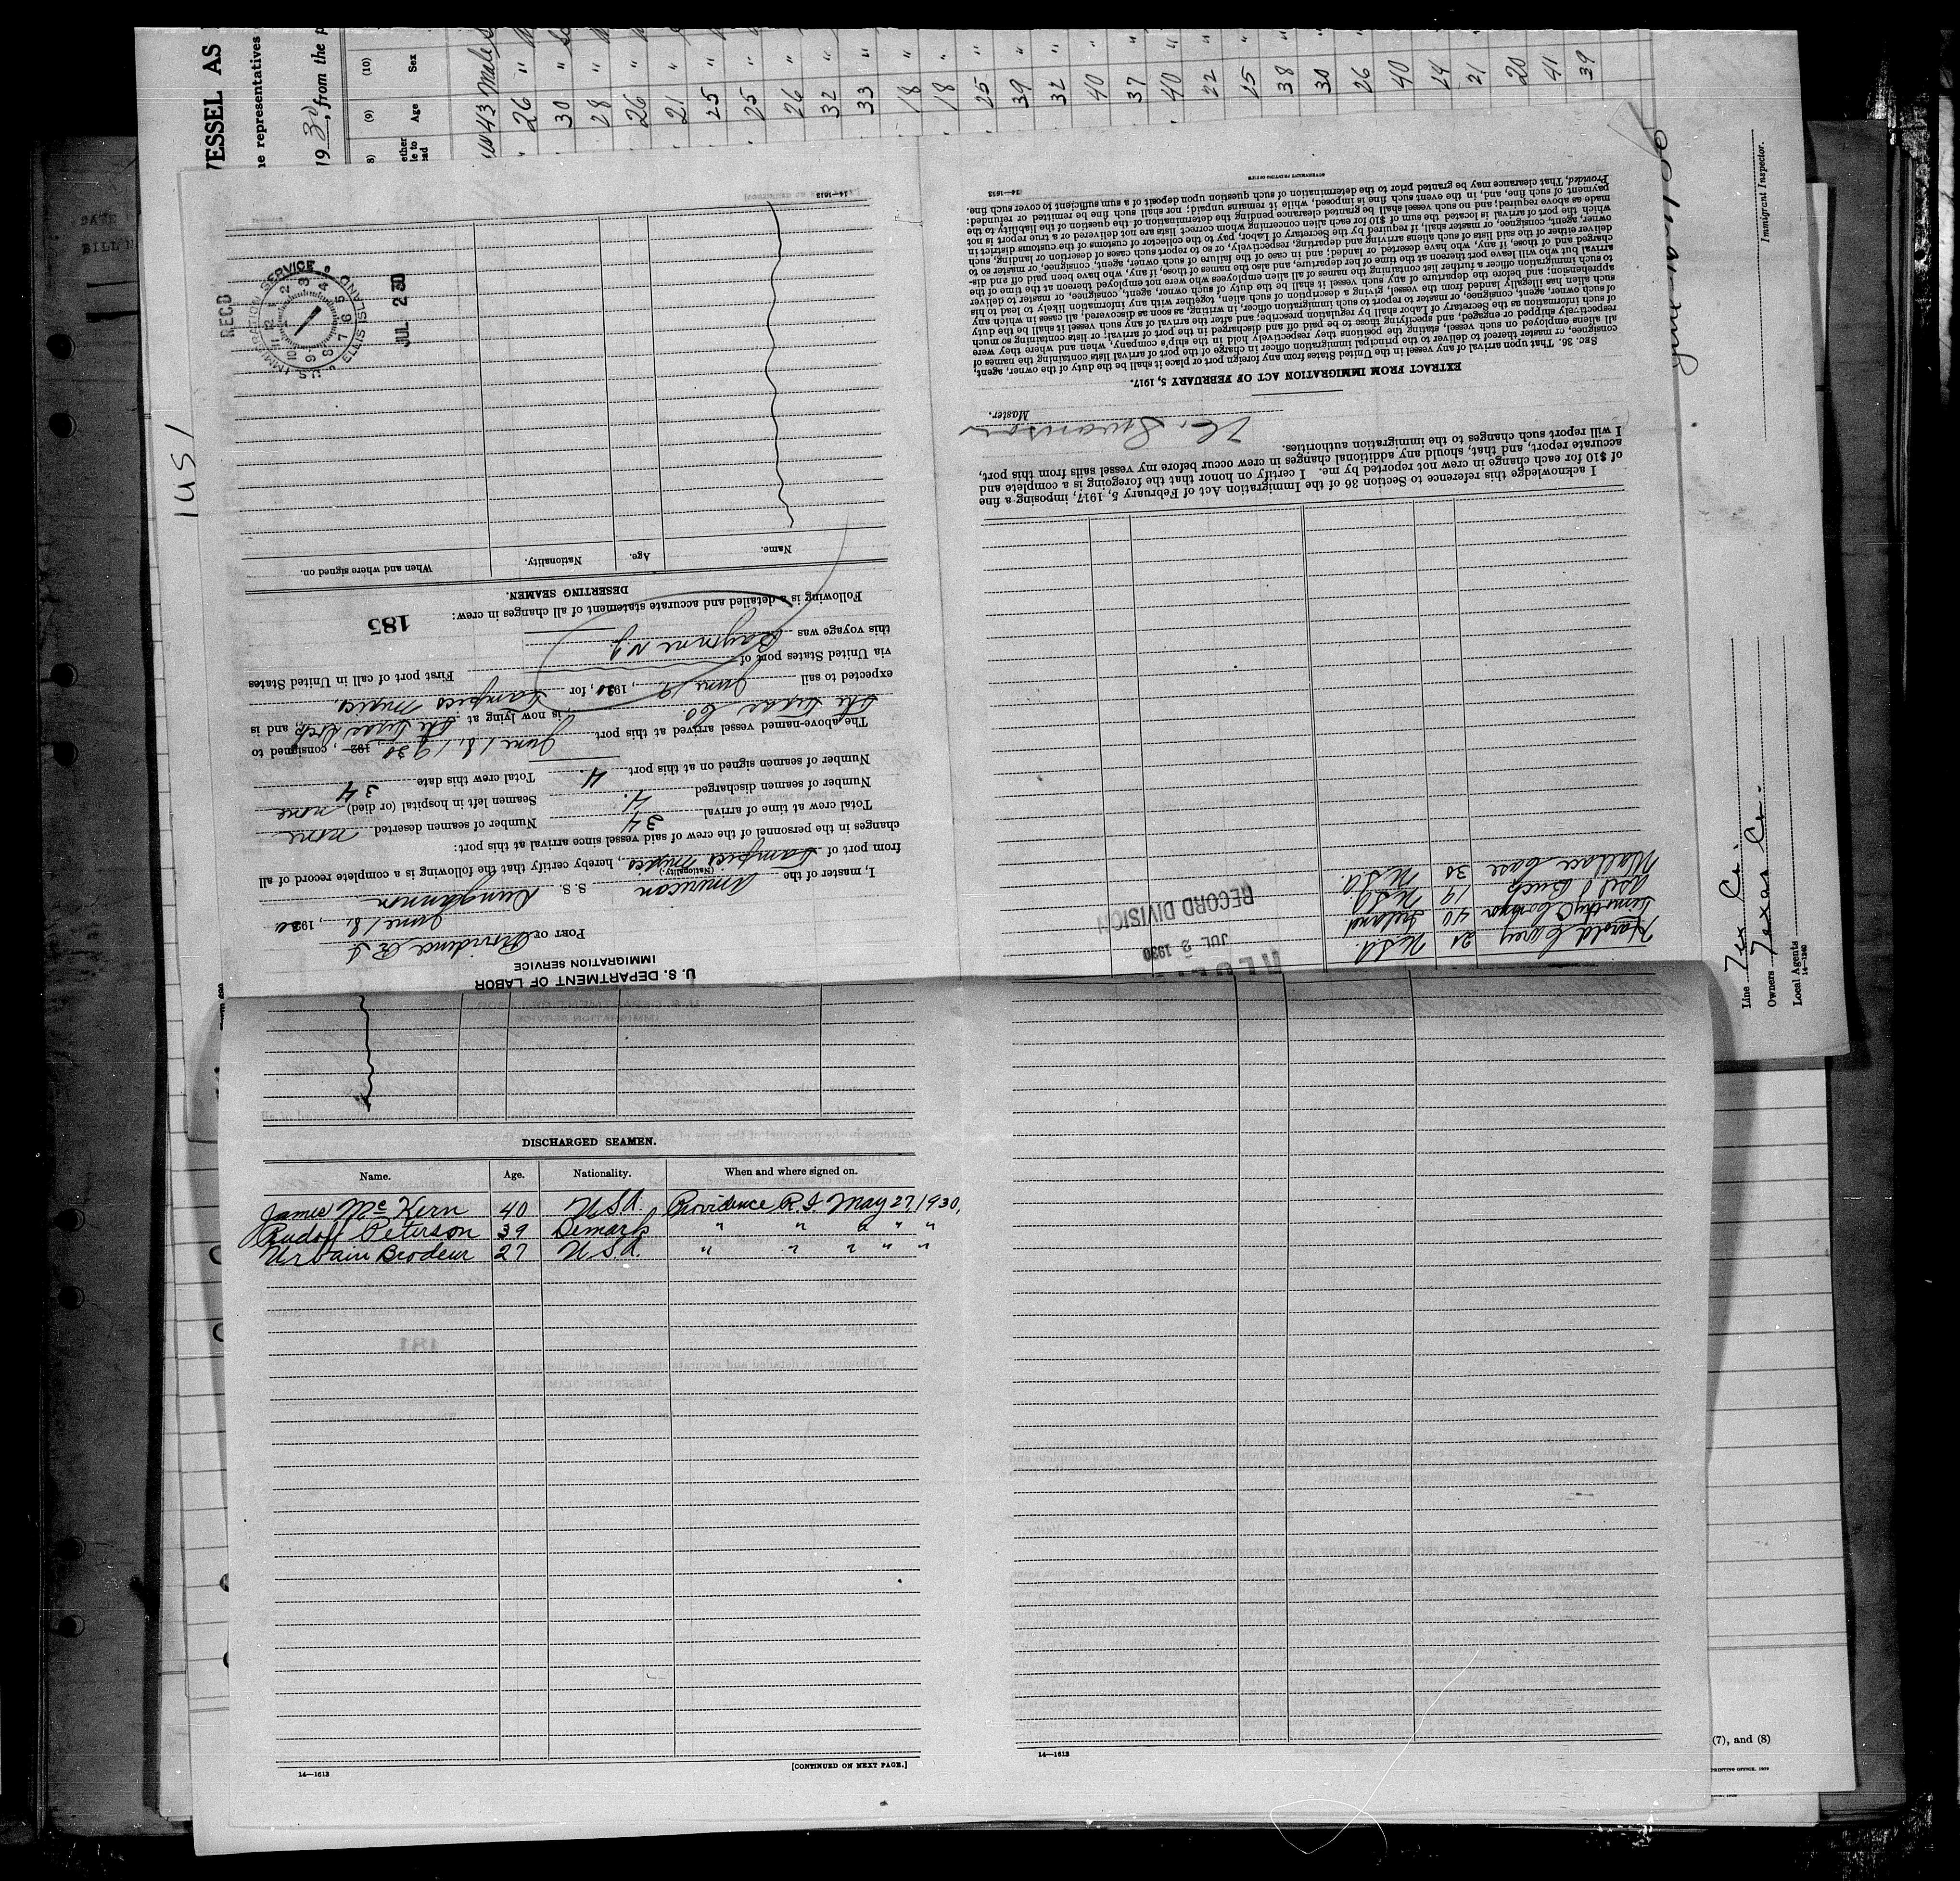 VESSEL AS
ne representatives
19 30, from the p
(10)
Sex
(9)
Age
8)
43 male
26 "
30 "
28 "
26 "
21 "
25 "
25 "
26 "
32 "
33 "
18 "
18 "
25 "
39 "
32 "
40 "
37 "
40 "
22 "
25 "
38 "
30
26
40
24
21
20
41
39
U. S. DEPARTMENT OF LABOR
IMMIGRATION SERVICE
PORT OF Providence R I
June 18, 1930
I, master of the American S. S. Dungannon
(Nationality.)
from port of Tampico Mexico, hereby certify that the following is a complete record of all
changes in the personnel of the crew of said vessel since arrival at this port:
Total crew at time of arrival 34 Number of seamen deserted none
Number of seamen discharged 4. Seamen left in hospital (or died) none
Number of seamen signed on at this port 4. Total crew this date 34
The above-named vessel arrived at this port June 18, 1930, 192 , consigned to
The Texas Co. is now lying at The Texas Dock, and is
expected to sail June 19, 1930, for Tampico Mexico.
via United States port of First port of call in United States
this voyage was Bayonne N.J.
185
Following is a detailed and accurate statement of all changes in crew:
DESERTING SEAMEN.
Name. Age. Nationality. When and where signed on.
REC'D
U.S. IMMIGRATION SERVICE
ELLIS ISLAND
JUL 2 30
14—1613
DISCHARGED SEAMEN.
Name. Age. Nationality. When and where signed on.
James Mc Kern 40 U.S.A. Providence R.I. May 27, 1930,
Rudolf Peterson 39 Demark " " " " "
Urbain Brodeur 27 U.S.A. " " " " "
14—1613
[CONTINUED ON NEXT PAGE.]
14—1613
Harold Carey 21 U.S.A.
Timothy O 40 Ireland
19 U.S.A.
Wallace Case 30 U.S.A.
JUL 2 1930
RECORD DIVISION
I acknowledge this reference to Section 36 of the Immigration Act of February 5, 1917, imposing a fine
of $10 for each change in crew not reported by me. I certify on honor that the foregoing is a complete and
accurate report, and that, should any additional changes in crew occur before my vessel sails from this port,
I will report such changes to the immigration authorities.
Swanson
Master.
EXTRACT FROM IMMIGRATION ACT OF FEBRUARY 5, 1917.
SEC. 36. That upon arrival of any vessel in the United States from any foreign port or place it shall be the duty of the owner, agent,
consignee, or master thereof to deliver to the principal immigration officer in charge of the port of arrival lists containing the names of
all aliens employed on such vessel, stating the positions they respectively hold in the ship's company, when and where they were
respectively shipped or engaged, and specifying those to be paid off and discharged in the port of arrival; or lists containing so much
of such information as the Secretary of Labor shall by regulation prescribe; and after the arrival of any such vessel it shall be the duty
of such owner, agent, consignee, or master to report to such immigration officer, in writing, as soon as discovered, all cases in which any
such alien has illegally landed from the vessel, giving a description of such alien, together with any information likely to lead to his
apprehension; and before the departure of any such vessel it shall be the duty of such owner, agent, consignee, or master to deliver
to such immigration officer a further list containing the names of all alien employees who were not employed thereon at the time of the
arrival but who will leave port thereon at the time of her departure, and also the names of those, if any, who have been paid off and dis-
charged and of those, if any, who have deserted or landed; and in case of the failure of such owner, agent, consignee, or master so to
deliver either of the said lists of such aliens arriving and departing, respectively, or so to report such cases of desertion or landing, such
owner, agent, consignee, or master shall, if required by the Secretary of Labor, pay to the collector of customs of the customs district in
which the port of arrival is located the sum of $10 for each alien concerning whom correct lists are not delivered or a true report is not
made as above required; and no such vessel shall be granted clearance pending the determination of the question of the liability to the
payment of such fine, and, in the event such fine is imposed, while it remains unpaid; nor shall such fine be remitted or refunded:
Provided, That clearance may be granted prior to the determination of such question upon deposit of a sum sufficient to cover such fine.
GOVERNMENT PRINTING OFFICE
14—1613
Immigrant Inspector.
Line Tex Co.
Owners Texas Co.
Local Agents
14—1240
(7), and (8)